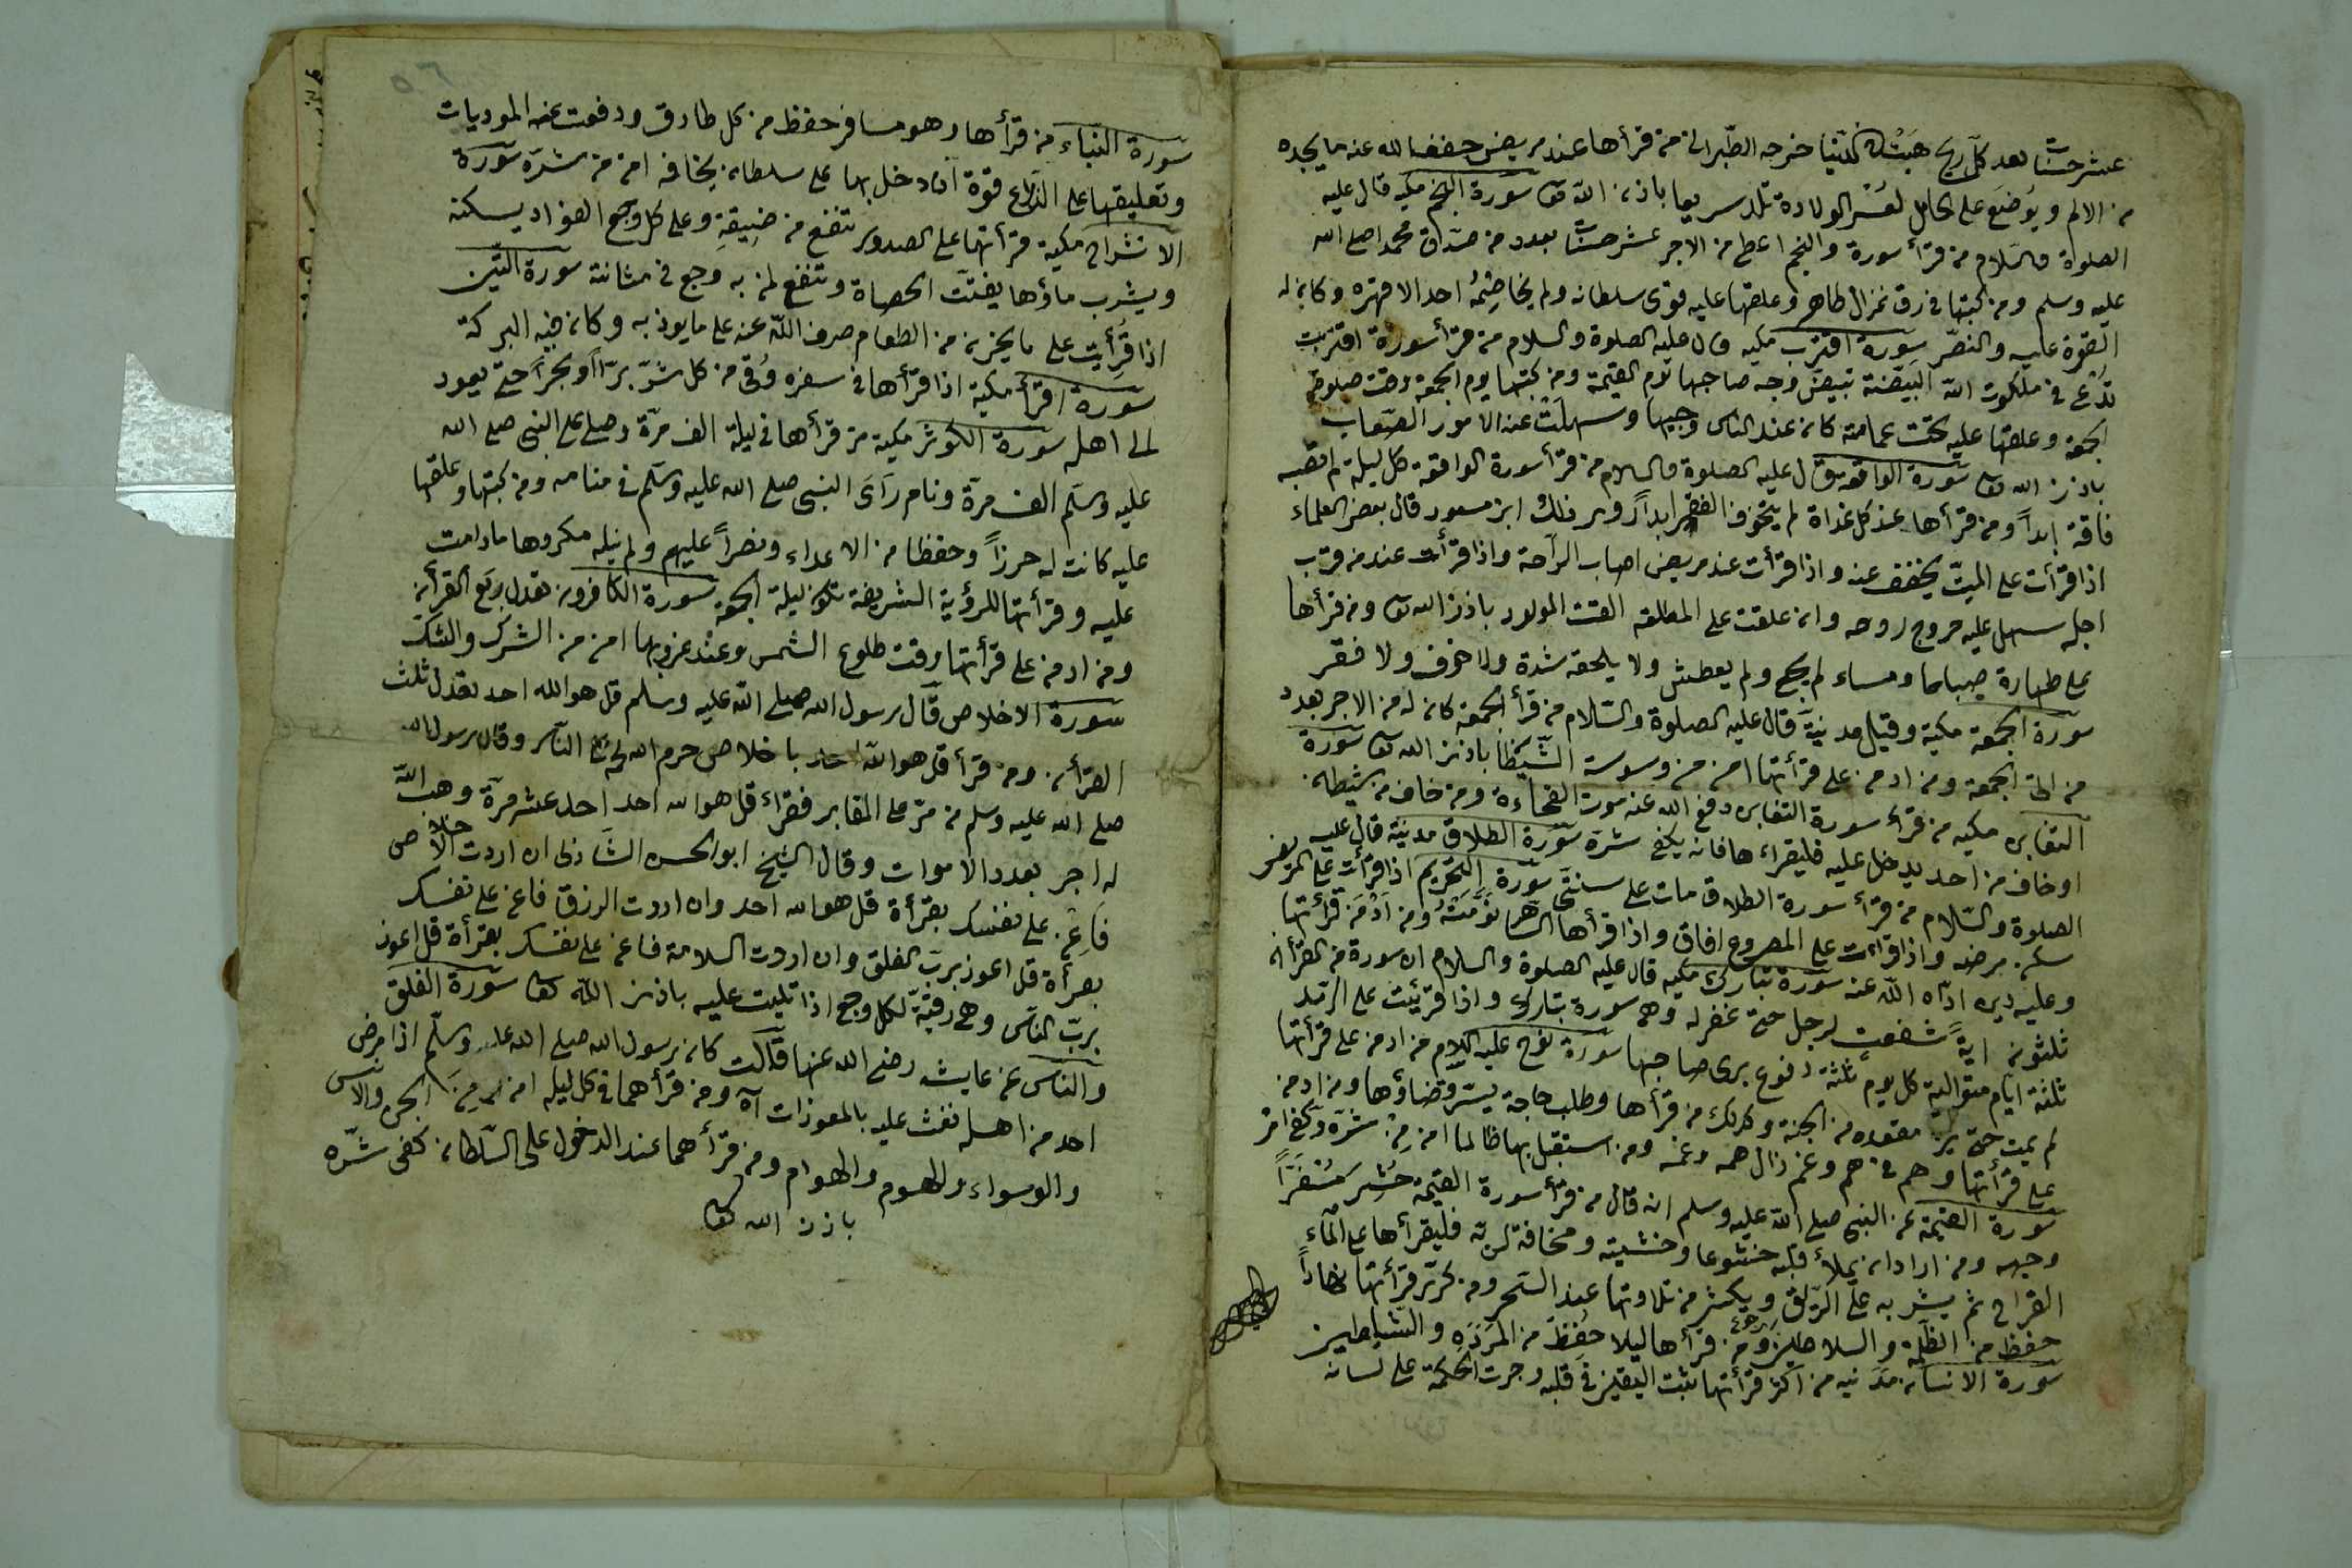 عشر حسنات بعد كل ريح هبت في الدنيا خرجه الطبراني من قرأها عند مريض خفف الله عنه ما يجده
من الالم ويوضع على الحامل لعسر الولادة تلد سريعا باذن الله تعا سورة النجم مكيه قال عليه
الصلواة والسلام من قرأ سورة والنجم اعطى من الاجر عشر حسنات بعدد من صدق محمد اصلى الله
عليه وسلم ومن كتبها في رق غزال طاهر وعلقها عليه قوى سلطانه ولم يخاصمه احد الا قهره وكان له
القوة عليه والنصر سورة اقتربت مكيه قال عليه الصلوة والسلام من قرأ سورة اقتربت
تدعى في ملكوت الله المبيضة تبيض وجه صاحبها يوم القيمة ومن كتبها يوم الجمعة وقت صلوة
الجمعة وعلقها عليه تحت عمامته كان عند الناس وجيها وسهلت عنه الامور الصعاب
باذن الله تعا سورة الواقعة قال عليه الصلوة والسلام من قرأ سورة الواقعة كل ليلة لم تصبه
فاقة ابداً ومن قرأها عند كل غداة لم يتخوف الفقر ابداً روى ذلك ابن مسعود قال بعض العلماء
اذا قرأت على الميت يخفف عنه واذا قرأت عند مريض اصاب الراحة واذا قرأت عند من قرب
اجله سهل عليه خروج روحه وان علقت على المطلقة القت المولود باذن الله تعا ومن قرأها
على طهارة صباحا ومساء لم يجع ولم يعطش ولا يلحقه شدة ولا خوف ولا فقر
سورة الجمعة مكية وقيل مدنية قال عليه الصلوة والسلام من قرأ الجمعة كان له من الاجر بعدد
من اتى الجمعة ومن ادمن على قرأتها امن من وسوسة الشيطا باذن الله تعا سورة
التغابن مكيه من قرأ سورة التغابن دفع الله عنه موت الفجاءة ومن خاف من شيطان
او خاف من احد يدخل عليه فليقراءها فانه يكفى شره سورة الطلاق مدنية قال عليه
الصلوة والسلام من قرأ سورة الطلاق مات على سنتى سورة التحريم اذا قرأت على المريض
سكن مرضه واذا قرأت على المصروع افاق واذا قرأها الساهر نومته ومن ادمن قرأتها
وعليه دين اداه الله عنه سورة تبارك مكيه قال عليه الصلوة والسلام ان سورة من القرآن
ثلثون اية شفعت لرجل حتى غفر له وهى سورة تبارك واذا قرئت على الرمد
ثلثة ايام متوالية كل يوم ثلثة دفوع برى صاحبها سورة نوح عليه السلام من ادمن على قرأتها
لم يمت حتى يرى مقعده من الجنة وكذلك من قرأها وطلب حاجة يسر قضاؤها ومن ادمن
على قرأتها وهم في هم وغم زال همه وغمه ومن استقبل بها ظالما امن من شره وكفى امر
سورة القيمة عن النبى صلى الله عليه وسلم انه قال من قرأ سورة القيمة حشر مسفراً
وجهه ومن اراد ان يملأ قلبه خشوعا وخشيته ومخافة لربه فليقرأها على الماء
القراح ثم يشربه على الريق ويكثر من تلاوتها عند السحر ومن كرر قرأتها نهاراً
حفظ من الظلمة والسلاطين ومن قرأها ليلا حفظ من المردة والشياطين
سورة الانسان مدنيه من اكثر قرأتها تثبت اليقين في قلبه وجرت الحكمة على لسانه
سورة النباء من قرأها وهو مسافر حفظ من كل طارق ودفعت عنه الموديات
وتعليقها على الذراع قوة ان دخل بها على سلطان يخافه امن من شره سورة
الانشراح مكية قرأتها على الصدور تنفع من ضيقه وعلى كل وجع الفواد يسكنه
ويشرب ماؤها يفتت الحصاة وتنفع لمن به وجع في مثانته سورة التين
اذا قرأيت على ما يخزن من الطعام صرف الله عنه على ما يوذ به وكان فيه البركة
سورة اقرأ مكية اذا قرأها في سفره وقى من كل شر براً او بحراً حتى يعود
الى اهله سورة الكوثر مكية من قرأها في ليلة الف مرة وصلى على النبى صلى الله
عليه وسلم الف مرة ونام رآى النبى صلى الله عليه وسلم في منامه ومن كتبها وعلقها
عليه كانت له حرزاً وحفظا من الاعداء ونصراً عليهم ولم ينله مكروها مادامت
عليه وقرأتها للرؤية الشريفة تكون ليلة الجمعة سورة الكافرون تعدل ربع القرآن
ومن ادمن على قرأتها وقت طلوع الشمس وعند غروبها امن من الشرك والشك
سورة الاخلاص قال رسول الله صلى الله عليه وسلم قل هو الله احد تعدل ثلث
القرأن ومن قرأ قل هو الله احد باخلاص حرم الله لحمه على النار وقال رسول الله
صلى الله عليه وسلم من مر على المقابر فقراء قل هو الله احد احد عشر مرة وهب الله
له اجر بعدد الاموات وقال الشيخ ابو الحسن الشاذلى ان اردت الاخلاص
فاعن على نفسك بقرأة قل هو الله احد وان اردت الرزق فاعن على نفسك
بقرأة قل اعوذ برب الفلق وان اردت السلامة فاعن على نفسك بقرأة قل اعوذ
برب الناس وهى رقية لكل وجع اذا تليت عليه باذن الله تعا سورة الفلق
والناس عن عايشه رضى الله عنها قالت كان رسول الله صلى الله عليه وسلم اذا مرض
احد من اهله نفث عليه بالمعوذات اه ومن قرأهما في كل ليلة امن من الجن والانس
والوسواء والهموم والهوام ومن قرأهما عند الدخول على السلطان كفى شره
باذن الله تعا